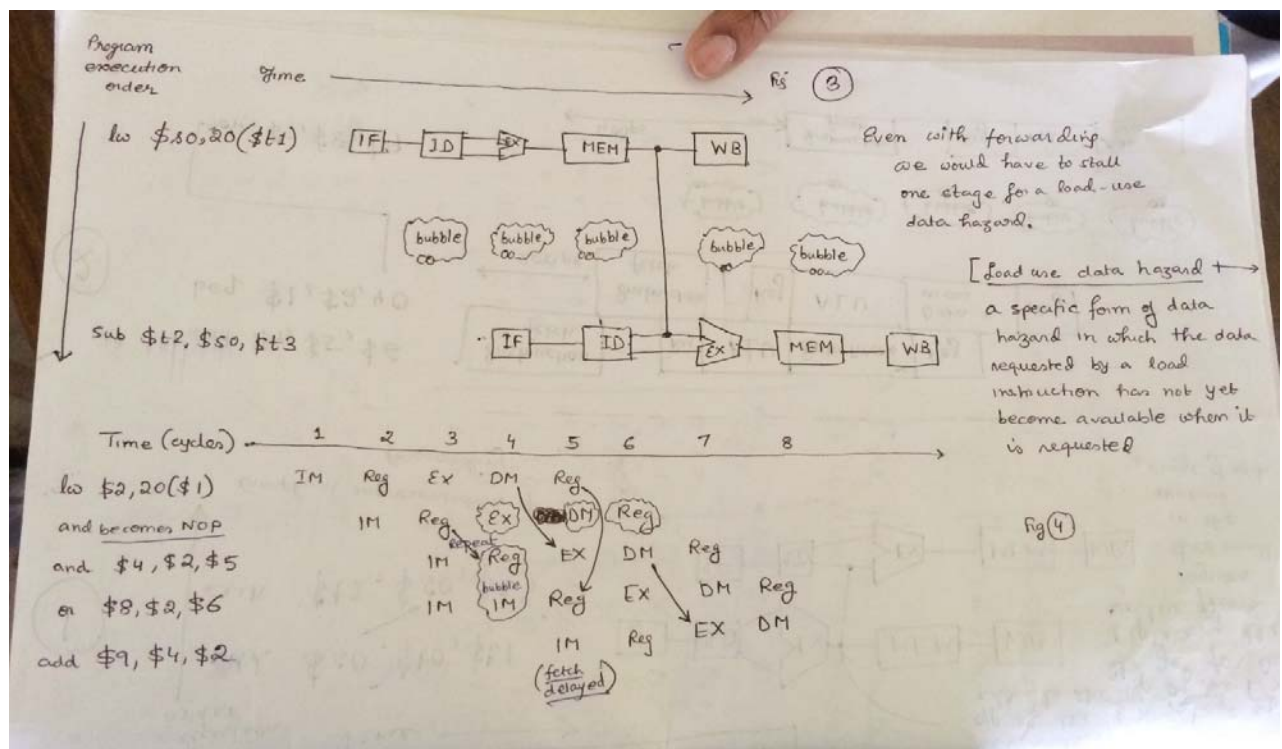 Program
execution
order
Time
Fig 3
lw $s0, 20($t1)
IF ID EX MEM WB
Even with forwarding
we would have to stall
one stage for a load-use
data hazard.
bubble bubble bubble bubble bubble
[Load use data hazard →
a specific form of data
hazard in which the data
requested by a load
instruction has not yet
become available when it
is requested
Sub $t2, $s0, $t3
IF ID EX MEM WB
Time (cycles) 1 2 3 4 5 6 7 8
lw $2, 20($1) IM Reg Ex DM Reg
and becomes NOP IM Reg EX DM Reg
repeat
and $4, $2, $5 IM Reg EX DM Reg
bubble
or $8, $2, $6 IM IM Reg EX DM Reg
add $9, $4, $2 IM Reg EX DM
(fetch
delayed)
Fig 4